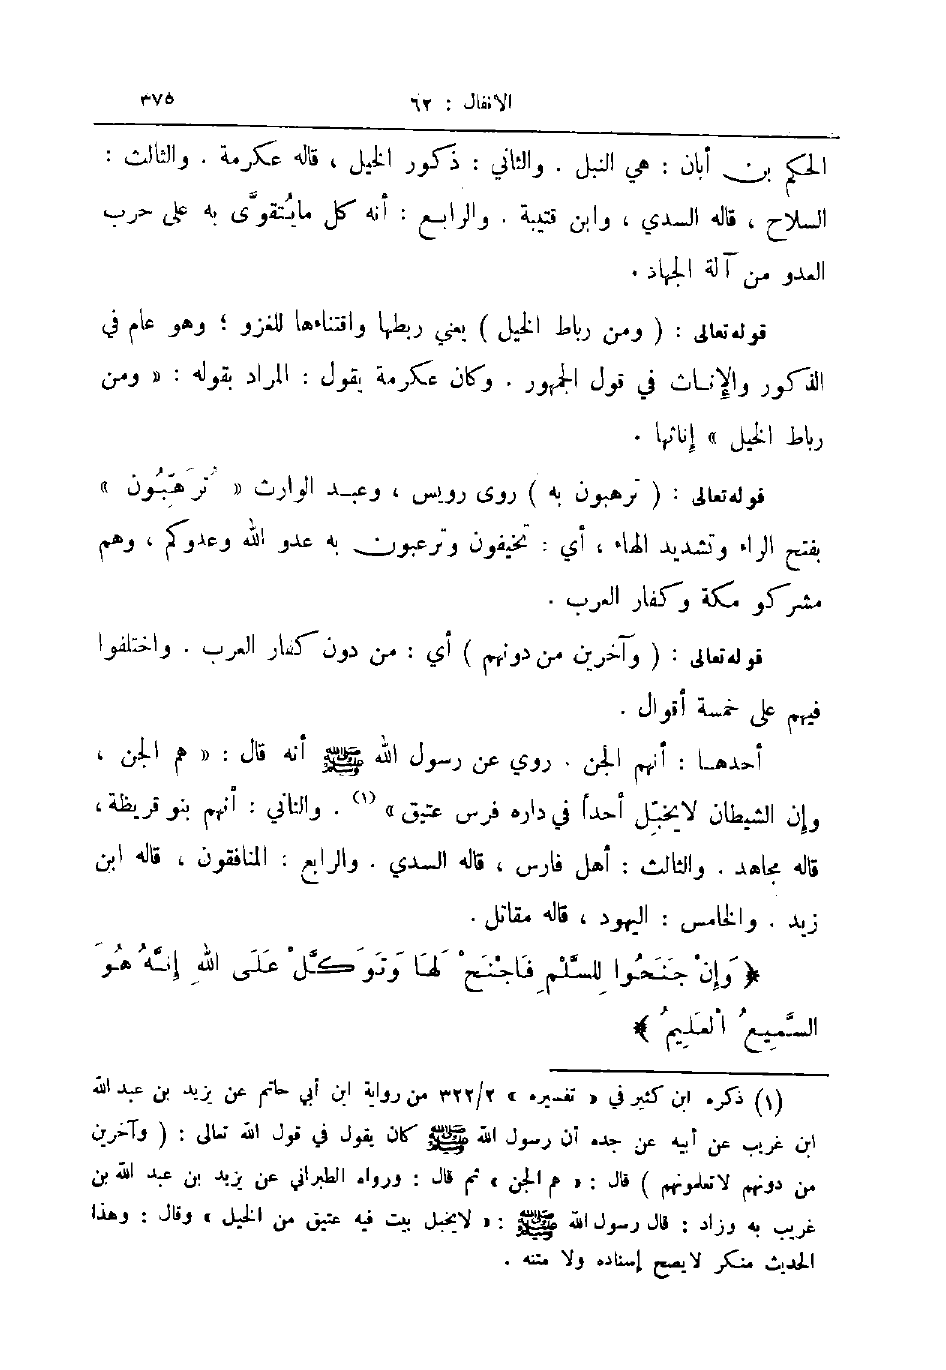 الانفال : ٦٢ ٣٧٥
الحكم بن أبان : هي النبل . والثاني : ذكور الخيل ، قاله عكرمة . والثالث :
السلاح ، قاله السدي ، وابن قتيبة . والرابع : أنه كل مايُتقوَّى به على حرب
العدو من آلة الجهاد .
قوله تعالى : ( ومن رباط الخيل ) يعني ربطها واقتناءها للغزو ؛ وهو عام في
الذكور والإناث في قول الجمهور . وكان عكرمة يقول : المراد بقوله : « ومن
رباط الخيل » إناثها .
قوله تعالى : ( ترهبون به ) روى رويس ، وعبد الوارث « تُرَهِّبُون »
بفتح الراء وتشديد الهاء ، أي : تخيفون وترعبون به عدو الله وعدوكم ، وهم
مشركو مكة وكفار العرب .
قوله تعالى : ( وآخرين من دونهم ) أي : من دون كفار العرب . واختلفوا
فيهم على خمسة أقوال .
أحدها : أنهم الجن . روي عن رسول الله ﷺ أنه قال : « هم الجن ،
وإن الشيطان لايخبِّل أحداً في داره فرس عتيق » (١) . والثاني : أنهم بنو قريظة ،
قاله مجاهد . والثالث : أهل فارس ، قاله السدي . والرابع : المنافقون ، قاله ابن
زيد . والخامس : اليهود ، قاله مقاتل .
﴿ وَإِنْ جَنَحُوا لِلسَّلْمِ فَاجْنَحْ لَهَا وَتَوَكَّلْ عَلَى اللهِ إِنَّهُ هُوَ
السَّمِيعُ الْعَلِيمُ ﴾
(١) ذكره ابن كثير في « تفسيره » ٣٢٢/٢ من رواية ابن أبي حاتم عن يزيد بن عبد الله
ابن غريب عن أبيه عن جده أن رسول الله ﷺ كان يقول في قول الله تعالى : ( وآخرين
من دونهم لاتعلمونهم ) قال : « هم الجن » ثم قال : ورواه الطبراني عن يزيد بن عبد الله بن
غريب به وزاد : قال رسول الله ﷺ : « لايخبل بيت فيه عتيق من الخيل » وقال : وهذا
الحديث منكر لايصح إسناده ولا متنه .